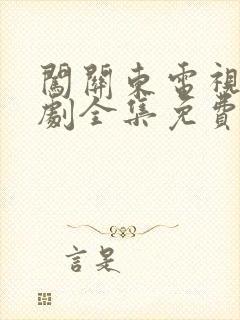 闖關東電視
劇全集免費
言是